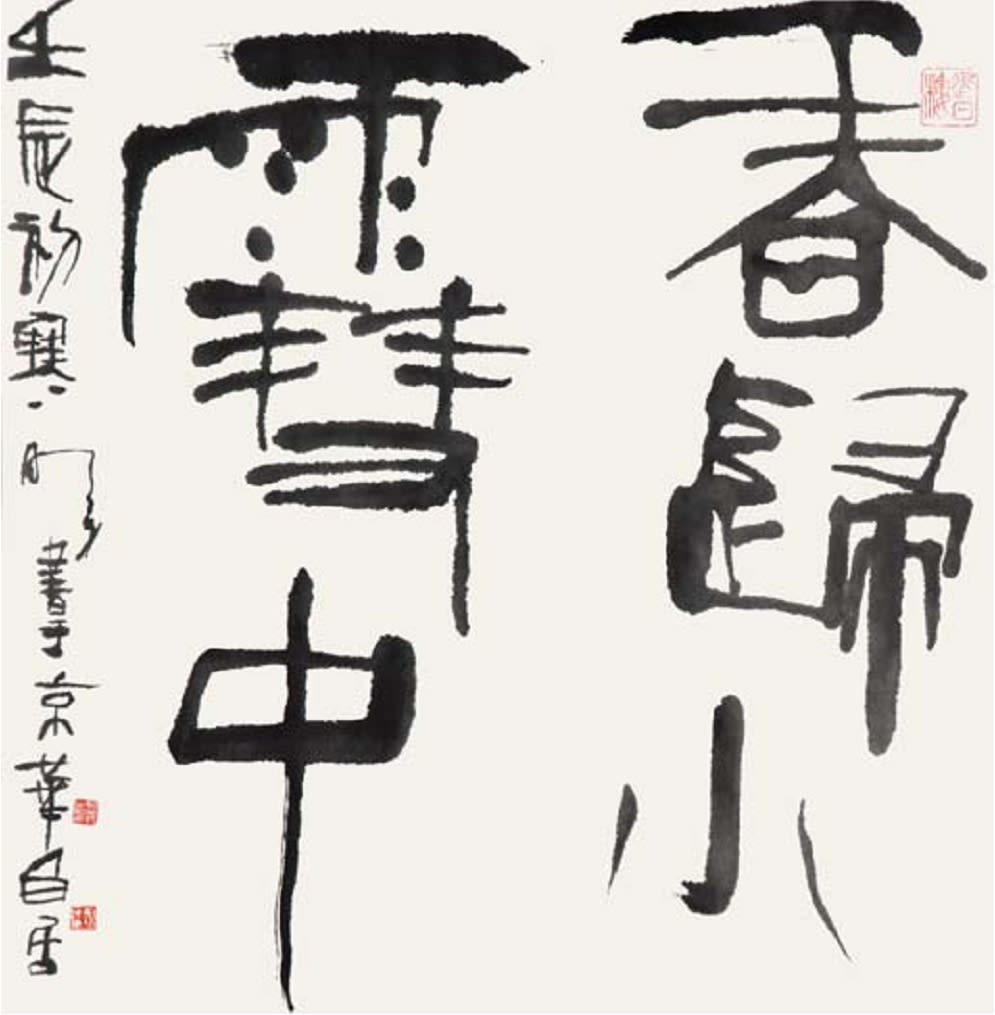 春歸小
雪中
壬辰初寒書于京華